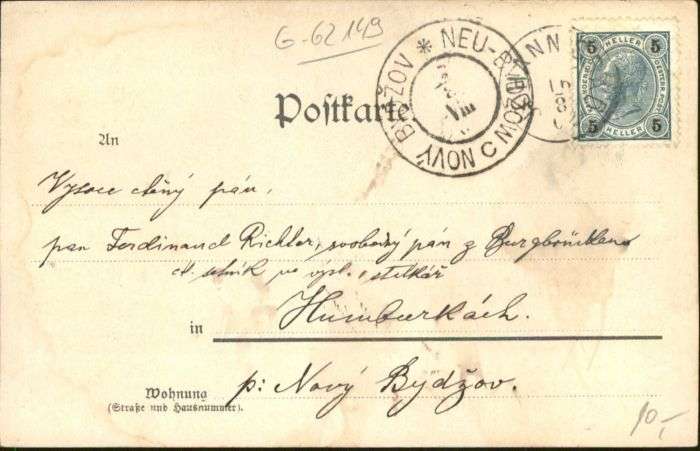 G-62149
NEU-BIDSCHOW * NOVÝ BYDŽOV C
VIII
5 HELLER 5
5 HELLER 5
Postkarte
An
Vysoce ctěný pán,
pan Ferdinand Richter, svobodný pán z
c. k. setník ve výsl.,
Humburkách.
in
p: Nový Bydžov.
Wohnung
(Straße und Hausnummer).
10,-